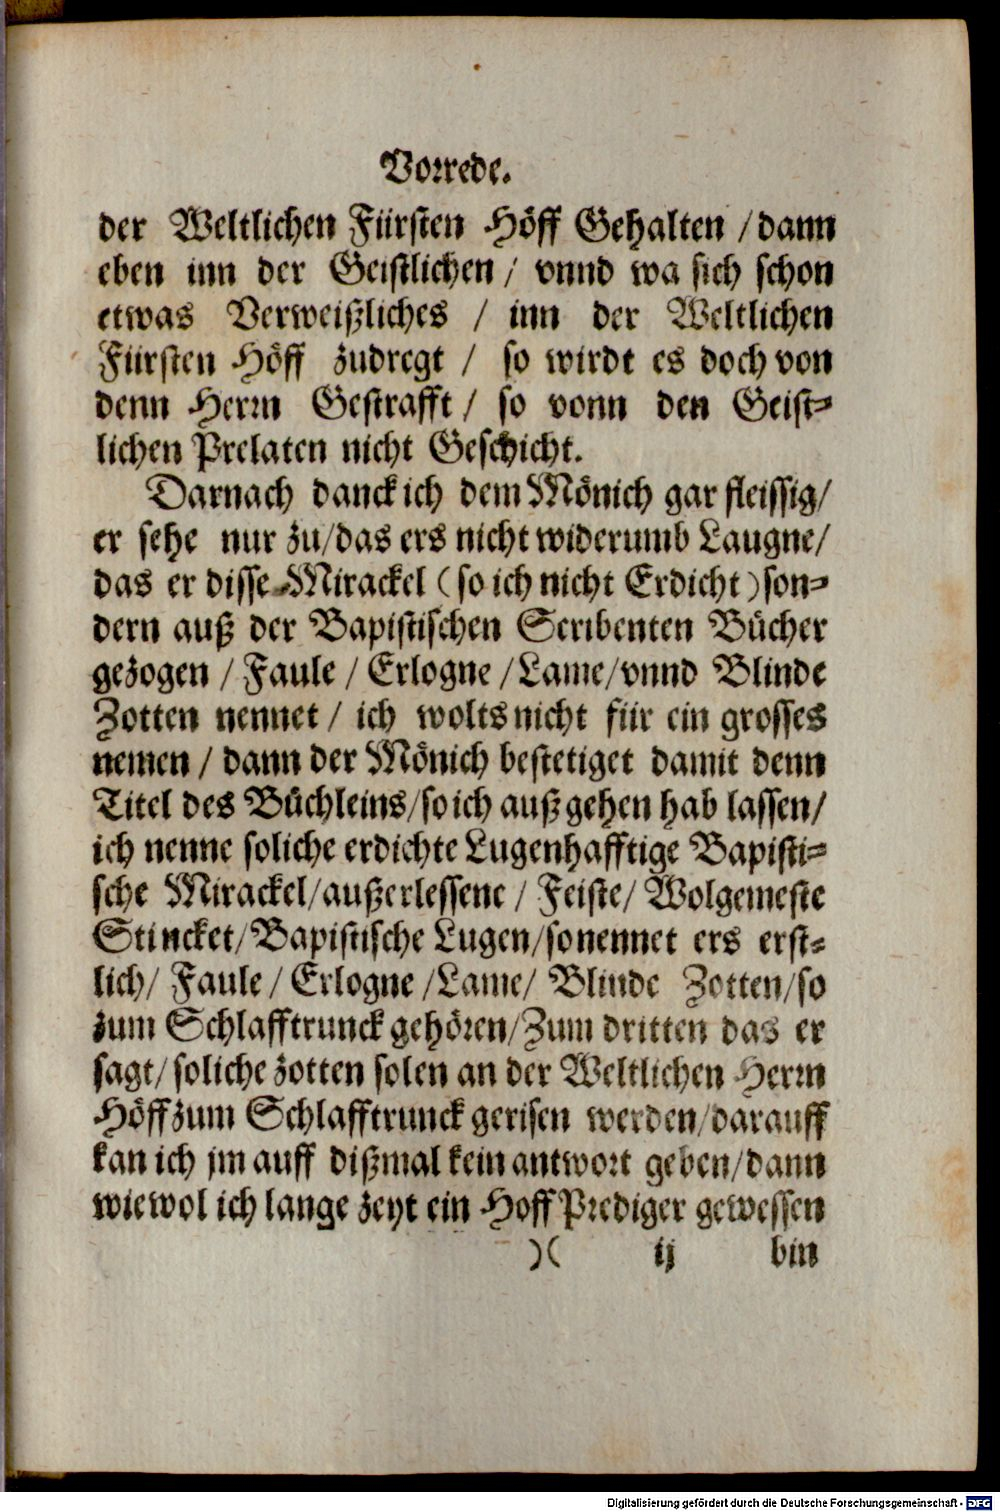 Vorrede.
der Weltlichen Fürsten Höff Gehalten / dann
eben inn der Geistlichen / vnnd wa sich schon
etwas Verweißliches / inn der Weltlichen
Fürsten Höff zudregt / so wirdt es doch von
denn Herrn Gestrafft / so vonn den Geist-
lichen Prelaten nicht Geschicht.
Darnach danck ich dem Mönich gar fleissig/
er sehe nur zu/das ers nicht widerumb Laugne/
das er disse Mirackel (so ich nicht Erdicht) son-
dern auß der Bapistischen Scribenten Bücher
gezogen / Faule / Erlogne /Lame/vnnd Blinde
Zotten nennet / ich wolts nicht für ein grosses
nemen / dann der Mönich bestetiget damit denn
Titel des Büchleins/so ich auß gehen hab lassen/
ich nenne soliche erdichte Lugenhafftige Bapisti-
sche Mirackel/außerlessene / Feiste/ Wolgemeste
Stincket/Bapistische Lugen/so nennet ers erst-
lich/ Faule / Erlogne /Lame/ Blinde Zotten/so
zum Schlafftrunck gehören/Zum dritten das er
sagt/soliche zotten solen an der Weltlichen Herrn
Höff zum Schlafftrunck gerisen werden/darauff
kan ich jm auff dißmal kein antwort geben/dann
wiewol ich lange zeyt ein Hoff Prediger gewessen
)( ij bin
Digitalisierung gefördert durch die Deutsche Forschungsgemeinschaft - DFG